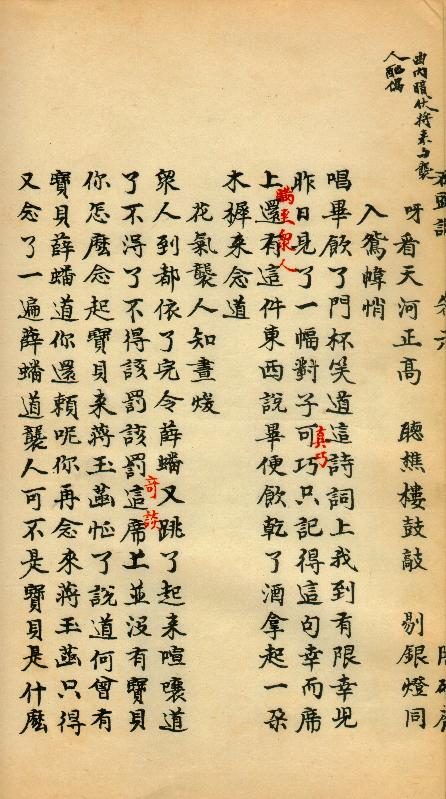 曲内暗伏将来与襲
人配偶
呀看天河正高 聽樵樓鼓敲 剔銀燈同
入鴛幃悄
唱畢飲了門杯笑道這詩詞上我到有限幸児
昨日見了一幅對子可巧只記得這句幸而席
真巧
瞞至衆人
上還有這件東西說畢便飲乾了酒拿起一朶
木樨来念道
花氣襲人知晝煖
衆人到都依了完令薛蟠又跳了起来喧嚷道
了不得了不得該罰該罰這席上並没有寶貝
奇談
你怎麽念起寶貝来蔣玉菡怔了說道何曾有
寶貝薛蟠道你還頼呢你再念来蔣玉菡只得
又念了一遍薛蟠道襲人可不是寶貝是什麽